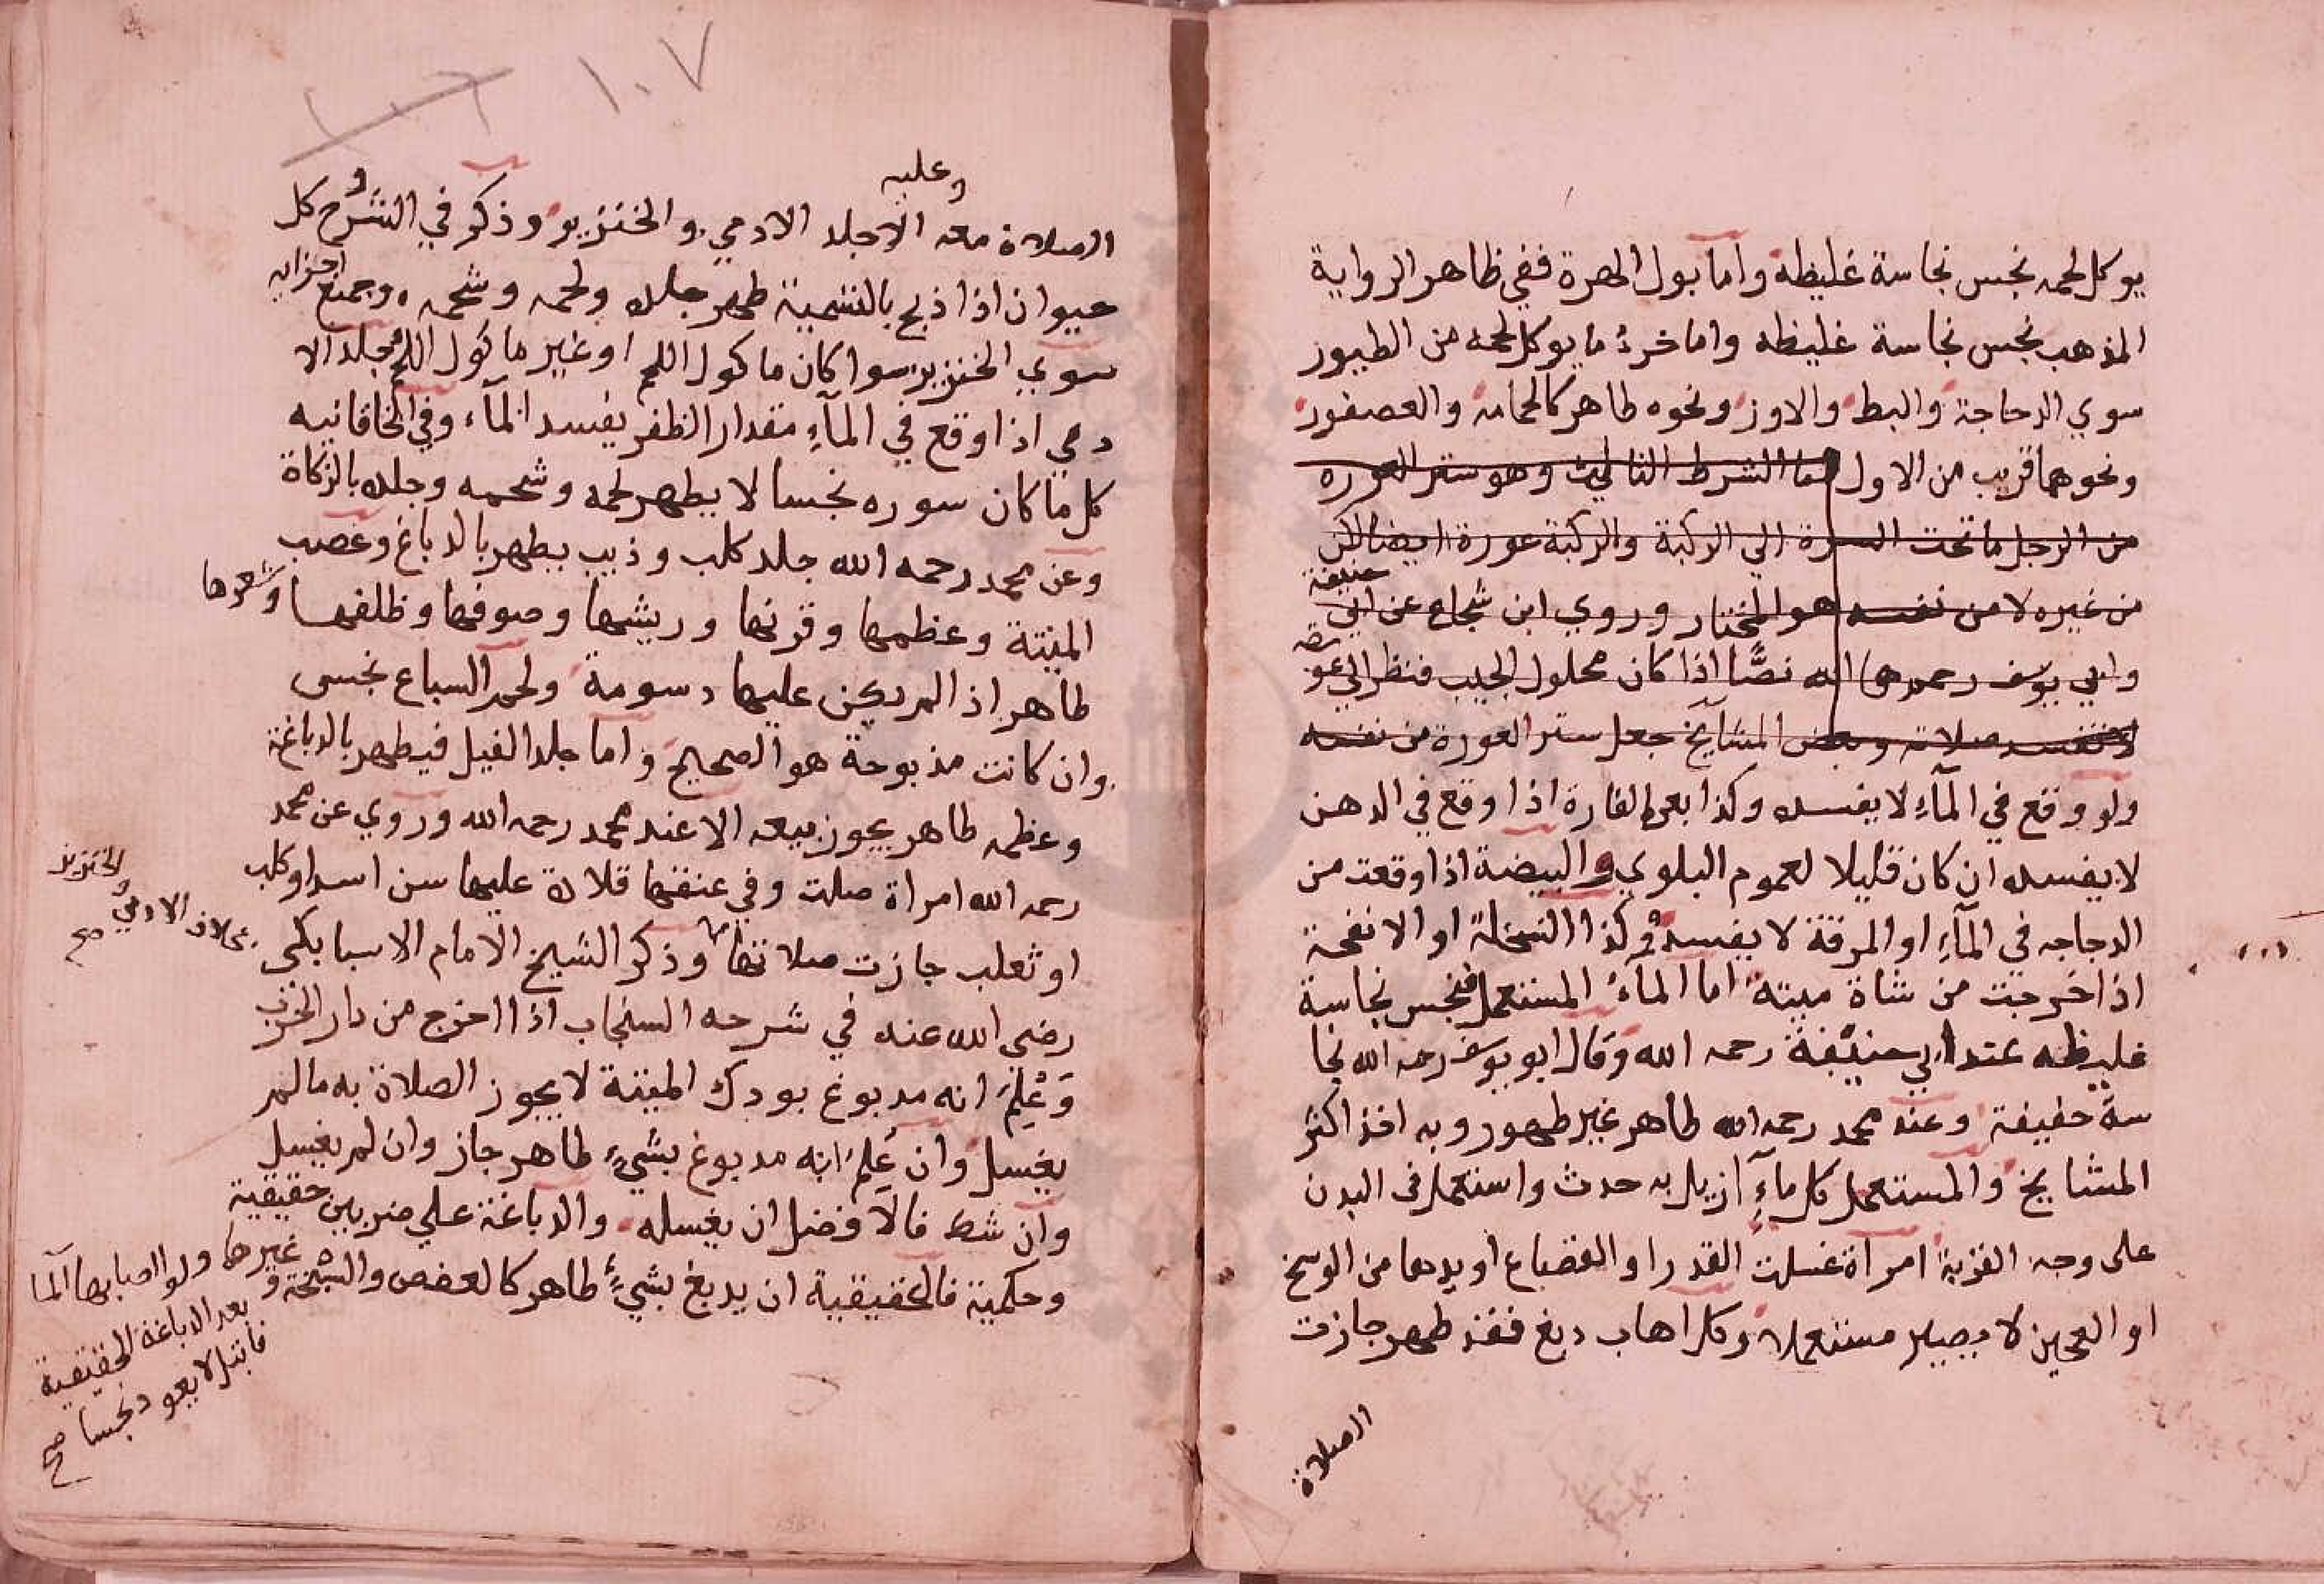 يوكل لحمه نجس نجاسة غليظه واما بول الهرة ففي ظاهر الرواية
المذهب نجس نجاسة غليظه واما خرؤ ما يوكل لحمه من الطيور
سوي الدجاجة والبط والاوز ونحوه طاهر كالحمامه والعصفور
ونحوهما قريب من الاول اما الشرط الثالث وهو ستر العوره
من الرجل ما تحت السرة الي الركبة والركبة عورة ايضا لكن
من غيره لا من نفسه هو المختار وروي ابن شجاع عن ابي حنيفة
وابي يوسف رحمهما الله نصًّا اذا كان محلول الجيب فنظر الي عورته
لا تفسد صلاته وبعض المشايخ جعل ستر العورة من نفسه
ولو وقع في المآء لا يفسده وكذا بعر الفارة اذا وقع في الدهن
لا يفسده ان كان قليلا لعموم البلوي والبيضة اذا وقعت من
الدجاجه في المآء او المرقة لا يفسده وكذا السخلة او الانفحة
اذا خرجت من شاة ميته اما المآء المستعمل فنجس نجاسة
غليظه عند ابي حنيفة رحمه الله وقال ابو يوسف رحمه الله نجا
سة خفيفة وعند محمد رحمه الله طاهر غير طهور وبه اخذ اكثر
المشايخ والمستعمل كل مآء ازيل به حدث واستعمل في البدن
على وجه القربة امراة غسلت القدر او القصاع او يدها من الوسخ
او العجين لا يصير مستعملا وكل اهاب دبغ فقد طهر جازت
الصلاة
الصلاة معه وعليه الا جلد الادمي والخنزير وذكر في الشرح وكل
حيوان اذا ذبح بالتسمية طهر جلده ولحمه وشحمه وجميع اجزايه
سوي الخنزير سوا كان ماكول اللحم او غير ماكول اللحم جلد الا
دمي اذا وقع في المآء مقدار الظفر يفسد المآء وفي الخاقانيه
كل ما كان سوره نجسا لا يطهر لحمه وشحمه وجلده بالزكاة
وعن محمد رحمه الله جلد كلب وذيب يطهر بالدباغ وعصب
الميتة وعظمها وقرنها وريشها وصوفها وظلفها وشعرها
طاهر اذ المريكن عليها دسومة ولحم السباع نجس
وان كانت مذبوحة هو الصحيح واما جلد الفيل فيطهر بالدباغة
وعظمه طاهر يجوز بيعه الا عند محمد رحمه الله وروي عن محمد
رحمه الله امراة صلت وفي عنقها قلادة عليها سن اسد او كلب
او ثعلب جازت صلاتها وذكر الشيخ الامام الاسبابكى
بخلاف الادمي والخنزير صح
رضي الله عنه في شرحه السنجاب اذا اخرج من دار الحرب
وَعُلِمَ انه مدبوغ بودك الميتة لا يجوز الصلاة به مالمر
يغسل وان عُلِمَ انه مدبوغ بشيءٍ طاهر جاز وان لمر يغسل
وان شك فالافضل ان يغسله والدباغة علي ضربين حقيقية
وحكمية فالحقيقية ان يدبغ بشيءٍ طاهر كالعفص والشبخة و
غيرها ولو اصابها المآ
بعد الدباغة الحقيقية
فابتل لا يعود نجسا صح
١٠٧